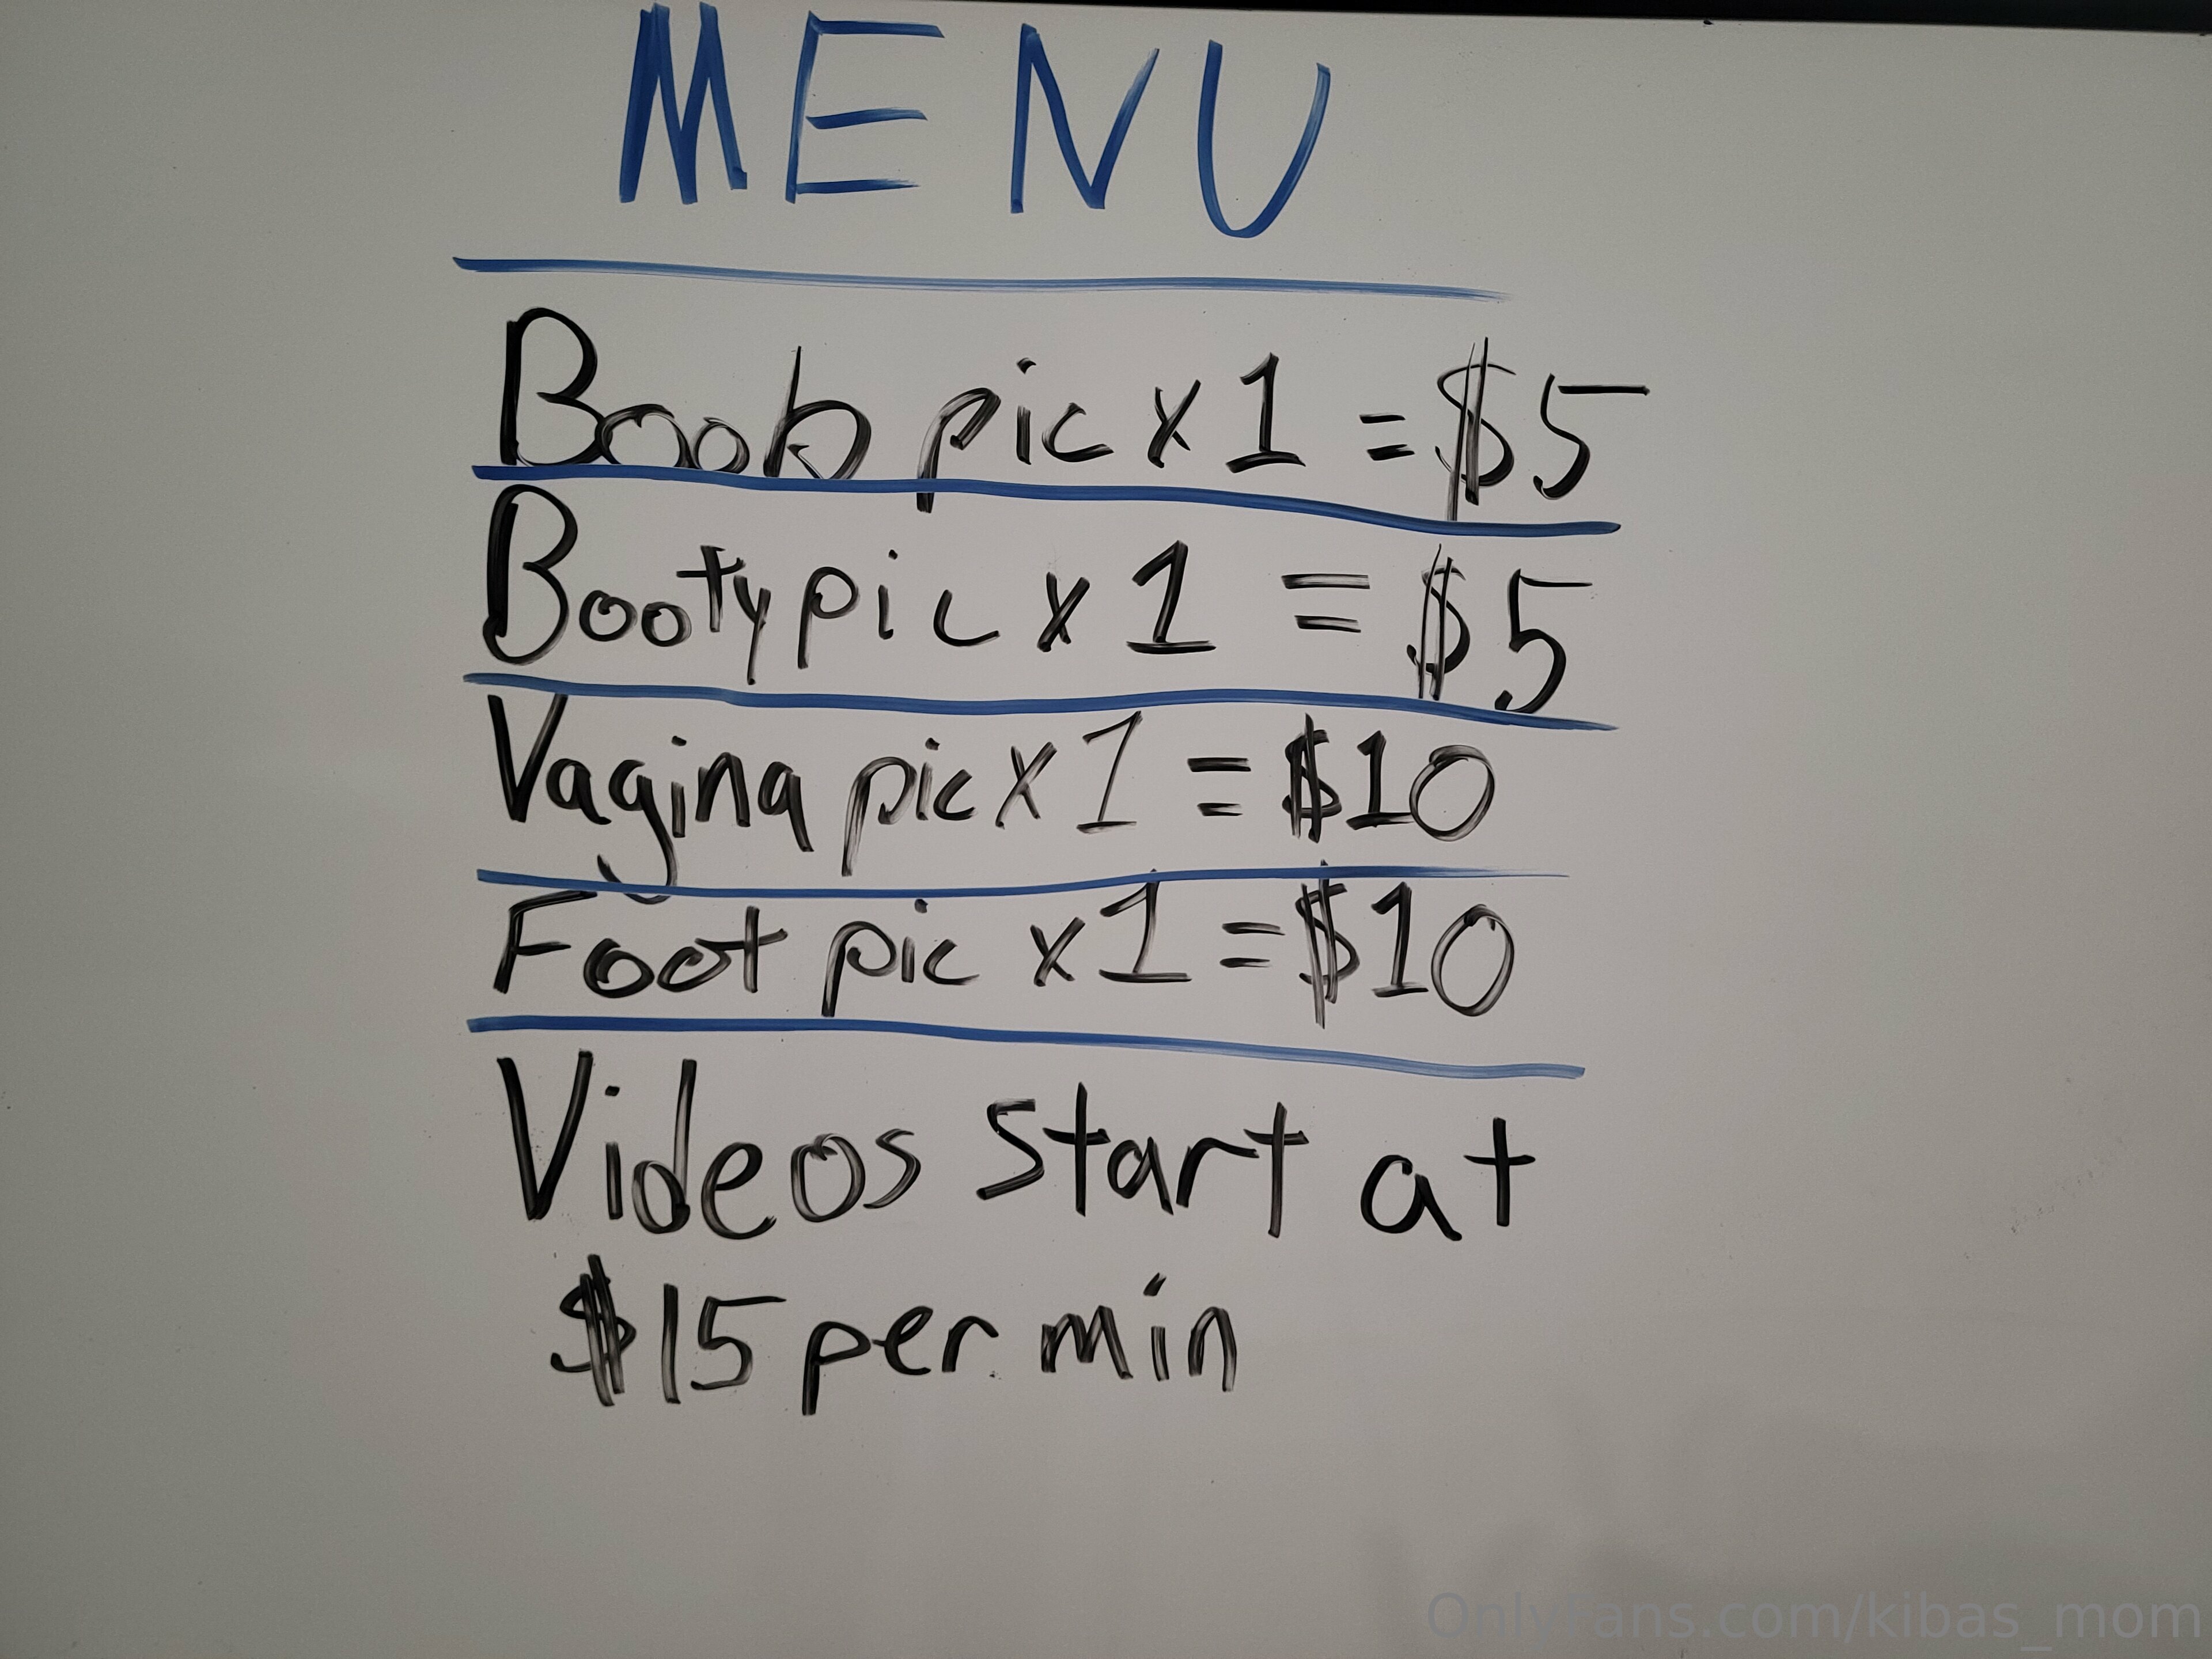 MENU
Boob pic x 1 = $5
Booty pic x 1 = $5
Vagina pic x 1 = $10
Foot pic x 1 = $10
Videos start at
$15 per min
OnlyFans.com/kibas_mom